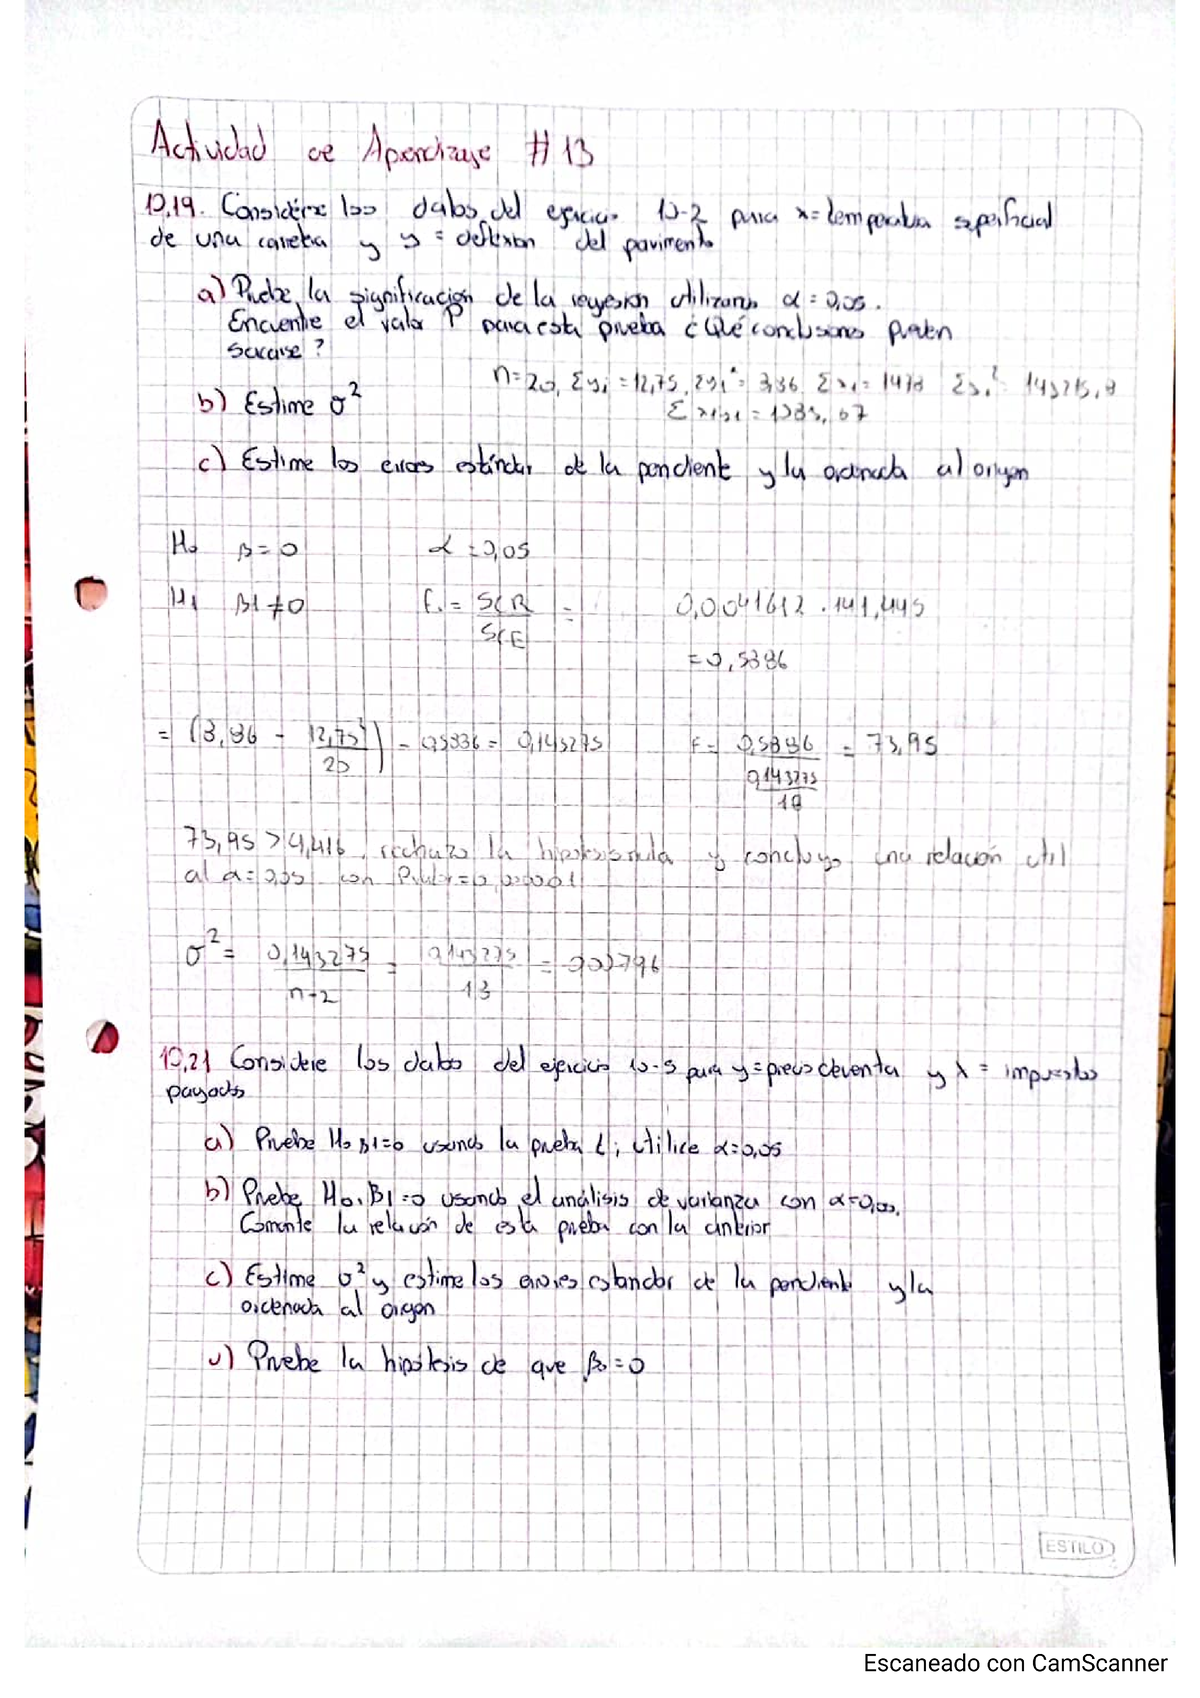 Actividad de Aperdizaje # 13
10.19. Considere los datos del ejercicio 10-2 para x = temperatura superficial
de una carretra y y = deflexion del pavimento
a) Pruebe la significacion de la regresion utilizando α = 0,05.
Encuentre el valor P para esta prueba ¿Qué conclusiones pueden
sacarse?
n=20, Σyi = 12,75, Σyi² = 8,86 Σxi = 1478 Σxi² 143215,8
b) Estime σ²
Σ xiyi = 1083,67
c) Estime los errores estándar de la pendiente y la ordenada al origen
H₀ β = 0 α = 0,05
H₁ β1 ≠ 0 F. = SCR / SCE = 0,0041612 . 141,445
= 0,5886
= (8,86 - 12,75² / 20) - 0,5886 = 0,143275 F = 0,5886 / 0,143275 / 18 = 73,95
73,95 > 4,416, rechazo la hipotesis nula y concluyo una relación util
al α = 0,05 con P valor = 0,000001
σ² = 0,143275 / n-2 = 0,143275 / 18 = 0,00796
10,21 Considere los datos del ejercicio 10-5 para y = precio de venta y x = impuestos
pagados
a) Pruebe H₀ β1=0 usando la prueba t; utilice α=0,05
b) Pruebe H₀. β1 = 0 usando el análisis de varianza con α=0,05.
Comente la relación de esta prueba con la anterior
c) Estime σ² y estime los errores estandar de la pendiente y la
ordenada al origen
d) Pruebe la hipótesis de que β₀ = 0
ESTILO
Escaneado con CamScanner